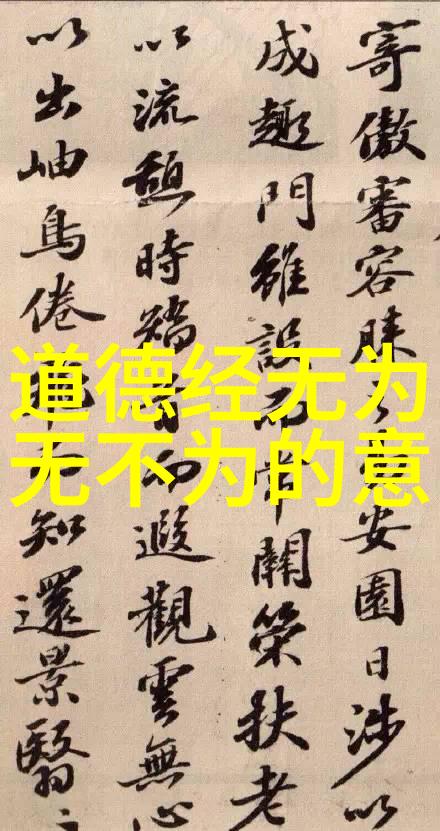 道德经无为
无不为的意
寄傲審容膝之易安園日涉以
成趣門雖設而常關策扶老
以流憩時矯首而遐觀雲無心
以出岫鳥倦飛而知還景翳